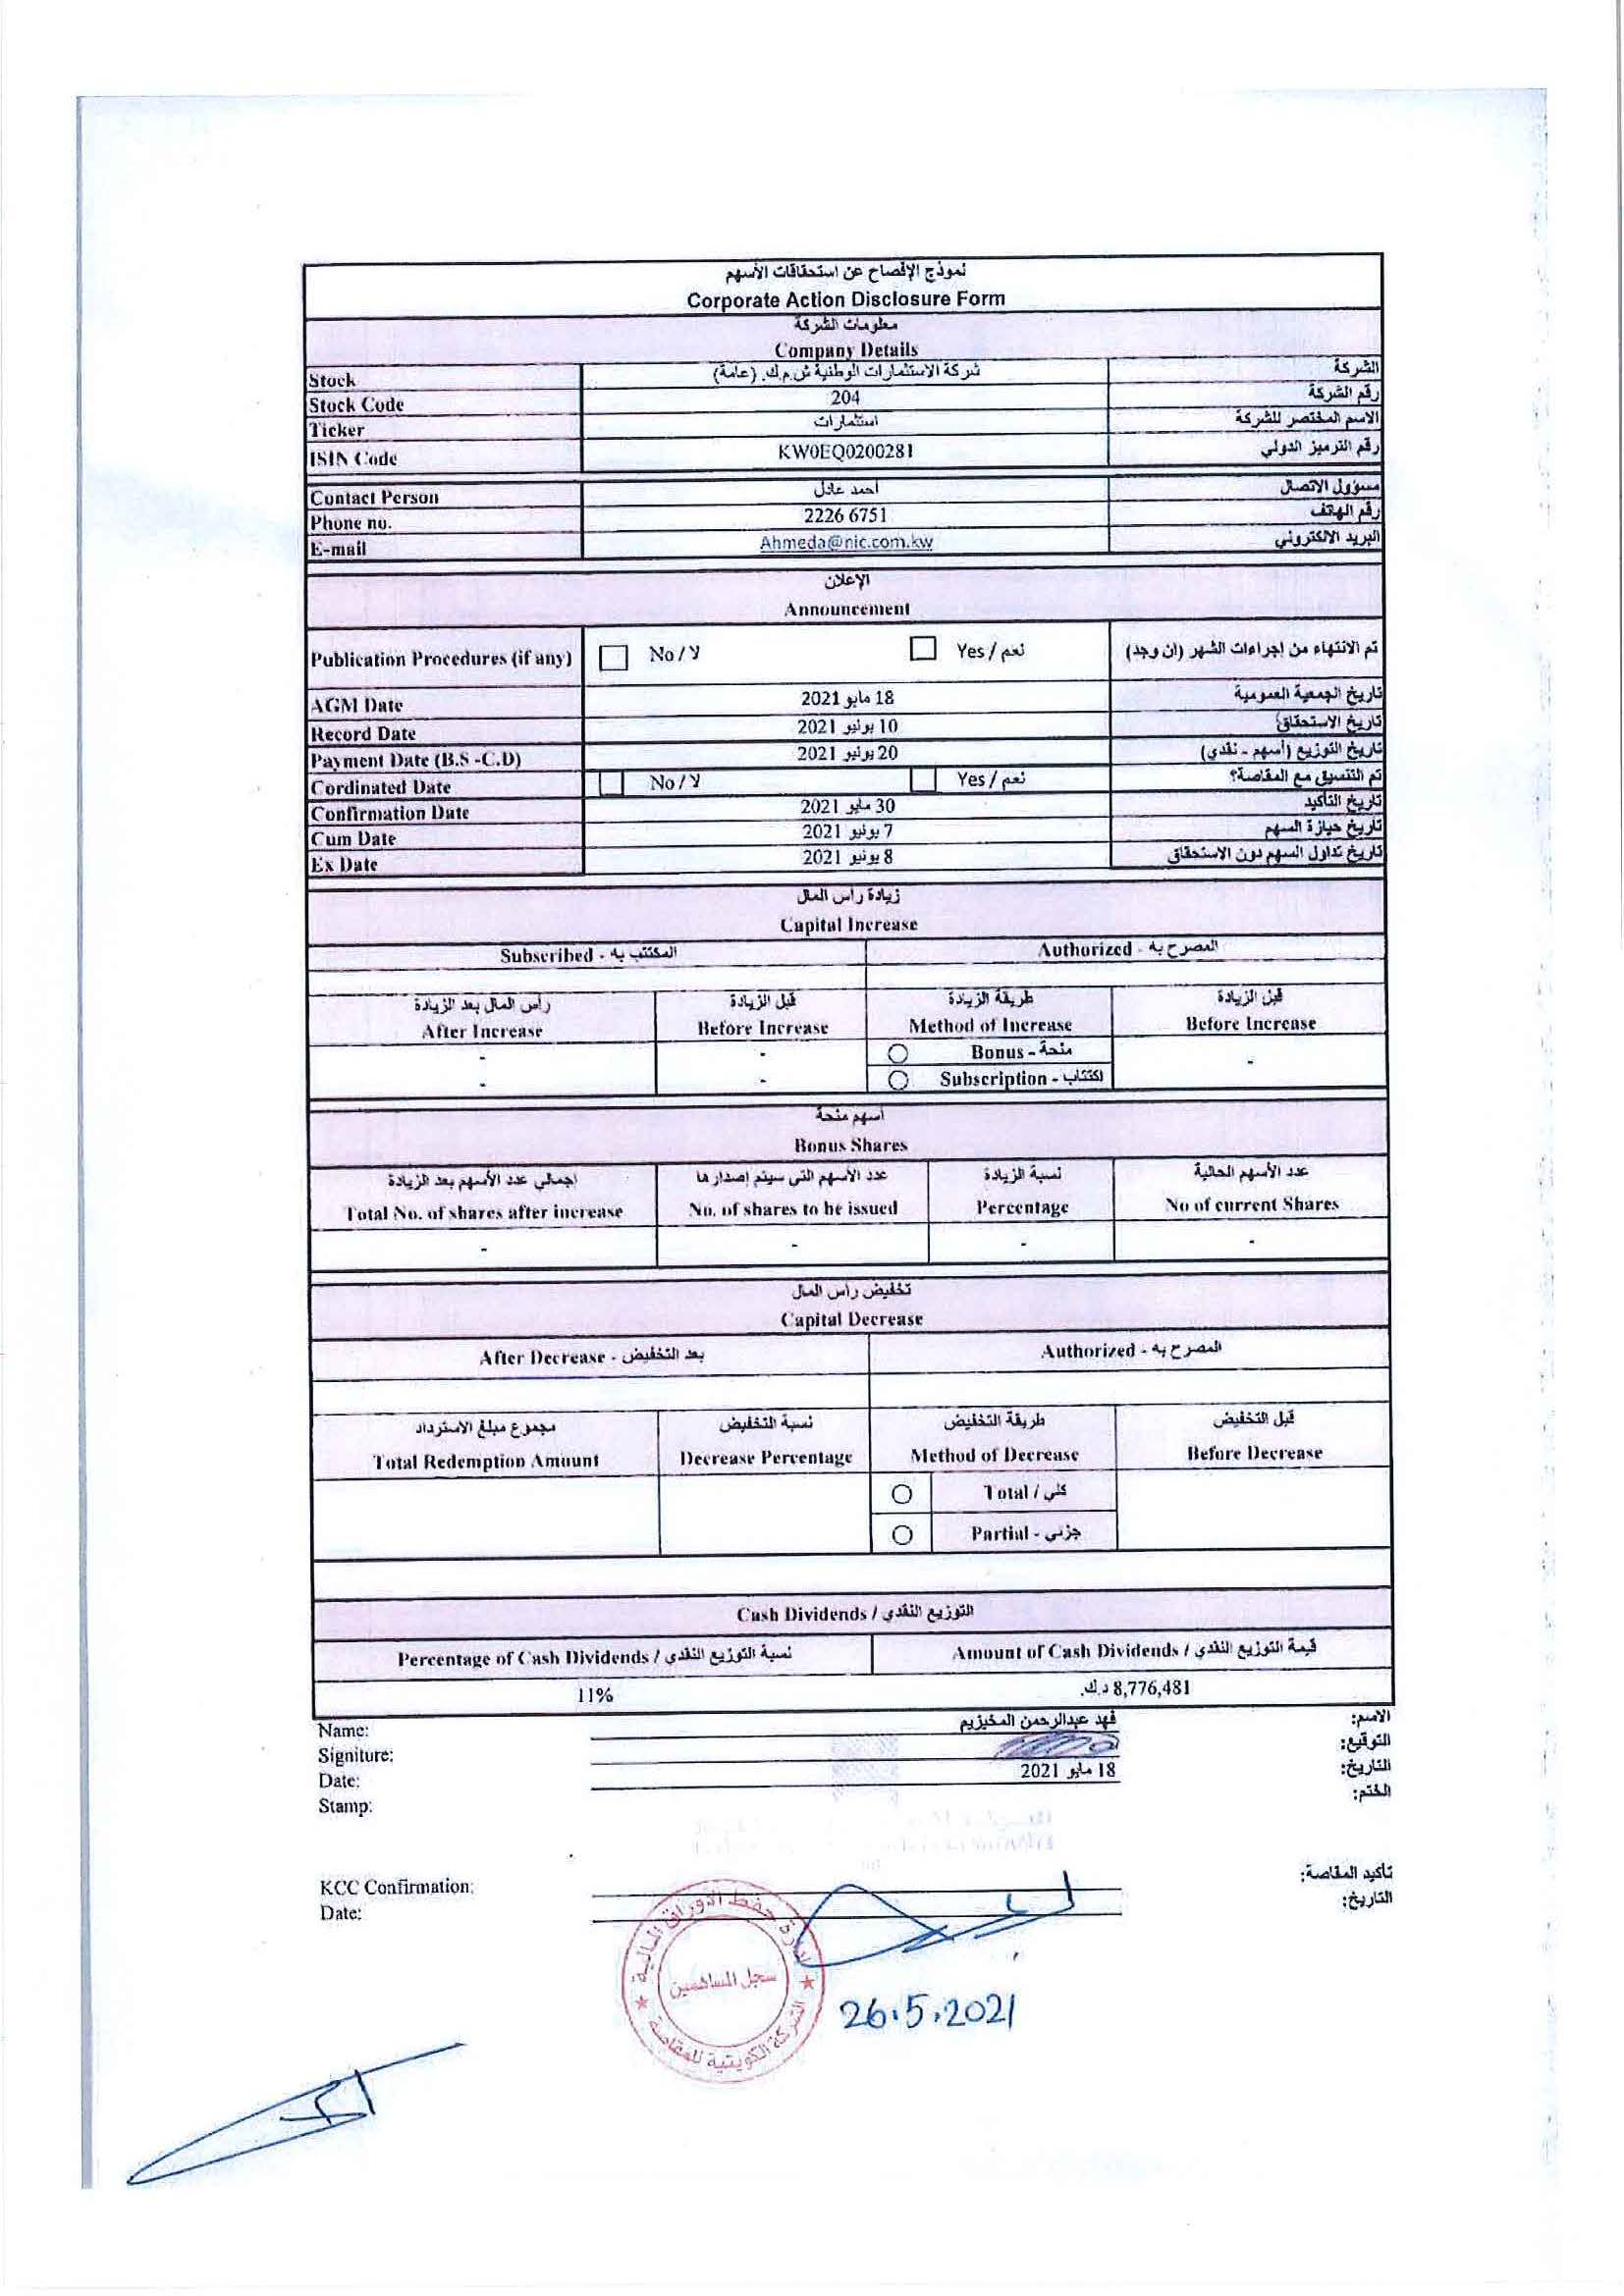 نموذج الإفصاح عن استحقاقات الأسهم
Corporate Action Disclosure Form
معلومات الشركة
Company Details
Stock شركة الاستثمارات الوطنية ش.م.ك. (عامة) الشركة
Stock Code 204 رقم الشركة
Ticker استثمارات الاسم المختصر للشركة
ISIN Code KW0EQ0200281 رقم الترميز الدولي
Contact Person احمد عادل مسؤول الاتصال
Phone no. 2226 6751 رقم الهاتف
E-mail Ahmeda@nic.com.kw البريد الالكتروني
الإعلان
Announcement
Publication Procedures (if any) No / لا Yes / نعم تم الانتهاء من إجراءات الشهر (ان وجد)
AGM Date 18 مايو 2021 تاريخ الجمعية العمومية
Record Date 10 يونيو 2021 تاريخ الاستحقاق
Payment Date (B.S -C.D) 20 يونيو 2021 تاريخ التوزيع (أسهم - نقدي)
Cordinated Date No / لا Yes / نعم تم التنسيق مع المقاصة؟
Confirmation Date 30 مايو 2021 تاريخ التأكيد
Cum Date 7 يونيو 2021 تاريخ حيازة السهم
Ex Date 8 يونيو 2021 تاريخ تداول السهم دون الاستحقاق
زيادة راس المال
Capital Increase
Subscribed - المكتتب به Authorized - المصرح به
رأس المال بعد الزيادة قبل الزيادة طريقة الزيادة قبل الزيادة
After Increase Before Increase Method of Increase Before Increase
- - Bonus - منحة -
- - Subscription - اكتتاب
أسهم منحة
Bonus Shares
إجمالي عدد الأسهم بعد الزيادة عدد الأسهم التي سيتم إصدارها نسبة الزيادة عدد الأسهم الحالية
Total No. of shares after increase No. of shares to be issued Percentage No of current Shares
- - - -
تخفيض رأس المال
Capital Decrease
After Decrease - بعد التخفيض Authorized - المصرح به
مجموع مبلغ الاسترداد نسبة التخفيض طريقة التخفيض قبل التخفيض
Total Redemption Amount Decrease Percentage Method of Decrease Before Decrease
Total / كلي
Partial - جزئي
Cash Dividends / التوزيع النقدي
Percentage of Cash Dividends / نسبة التوزيع النقدي Amount of Cash Dividends / قيمة التوزيع النقدي
11% 8,776,481 د.ك.
Name: فهد عبدالرحمن المخيزيم الاسم:
Signiture: التوقيع:
Date: 18 مايو 2021 التاريخ:
Stamp: الختم:
KCC Confirmation: تأكيد المقاصة:
Date: التاريخ:
إدارة حفظ الأوراق المالية
سجل المساهمين
الشركة الكويتية للمقاصة
26.5.2021